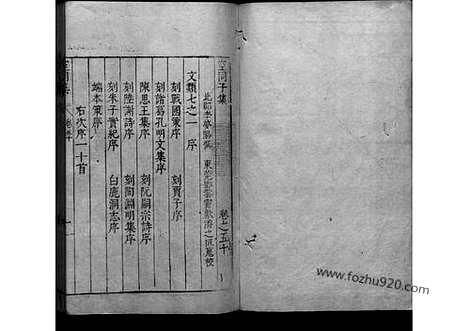 空同子集 卷之五十
文類七之一 序
刻戰國策序 刻賈子序
刻諸葛孔明文集序
陳思王集序 刻阮嗣宗詩序
刻陸謝詩序 刻陶淵明集序
刻朱子實紀序 白鹿洞志序
端本策序
右次序一十首
www.fozhu920.com